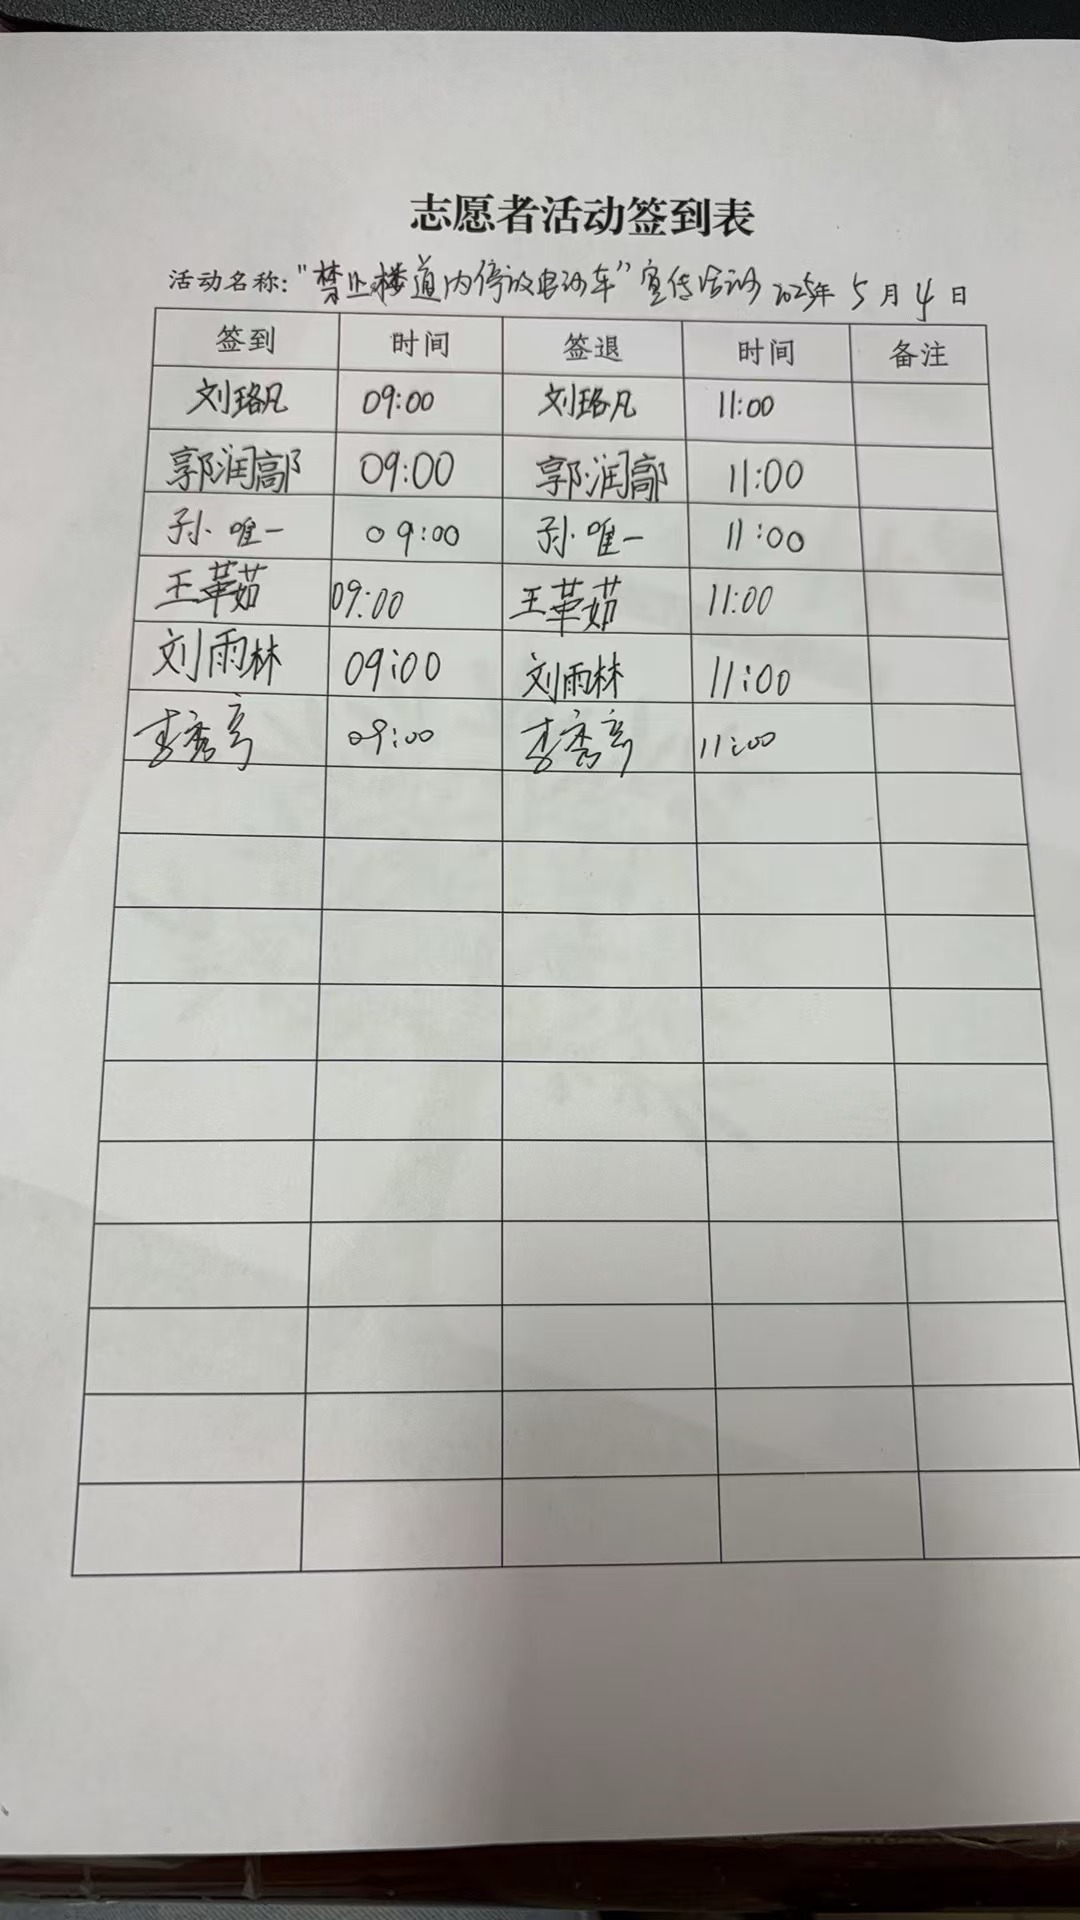 志愿者活动签到表
活动名称："禁止楼道内停放电动车"宣传活动 2025年 5 月 4 日
签到 时间 签退 时间 备注
刘珞凡 09:00 刘珞凡 11:00
郭润鄗 09:00 郭润鄗 11:00
孙唯一 09:00 孙唯一 11:00
王革茹 09:00 王革茹 11:00
刘雨林 09:00 刘雨林 11:00
李秀亭 09:00 李秀亭 11:00